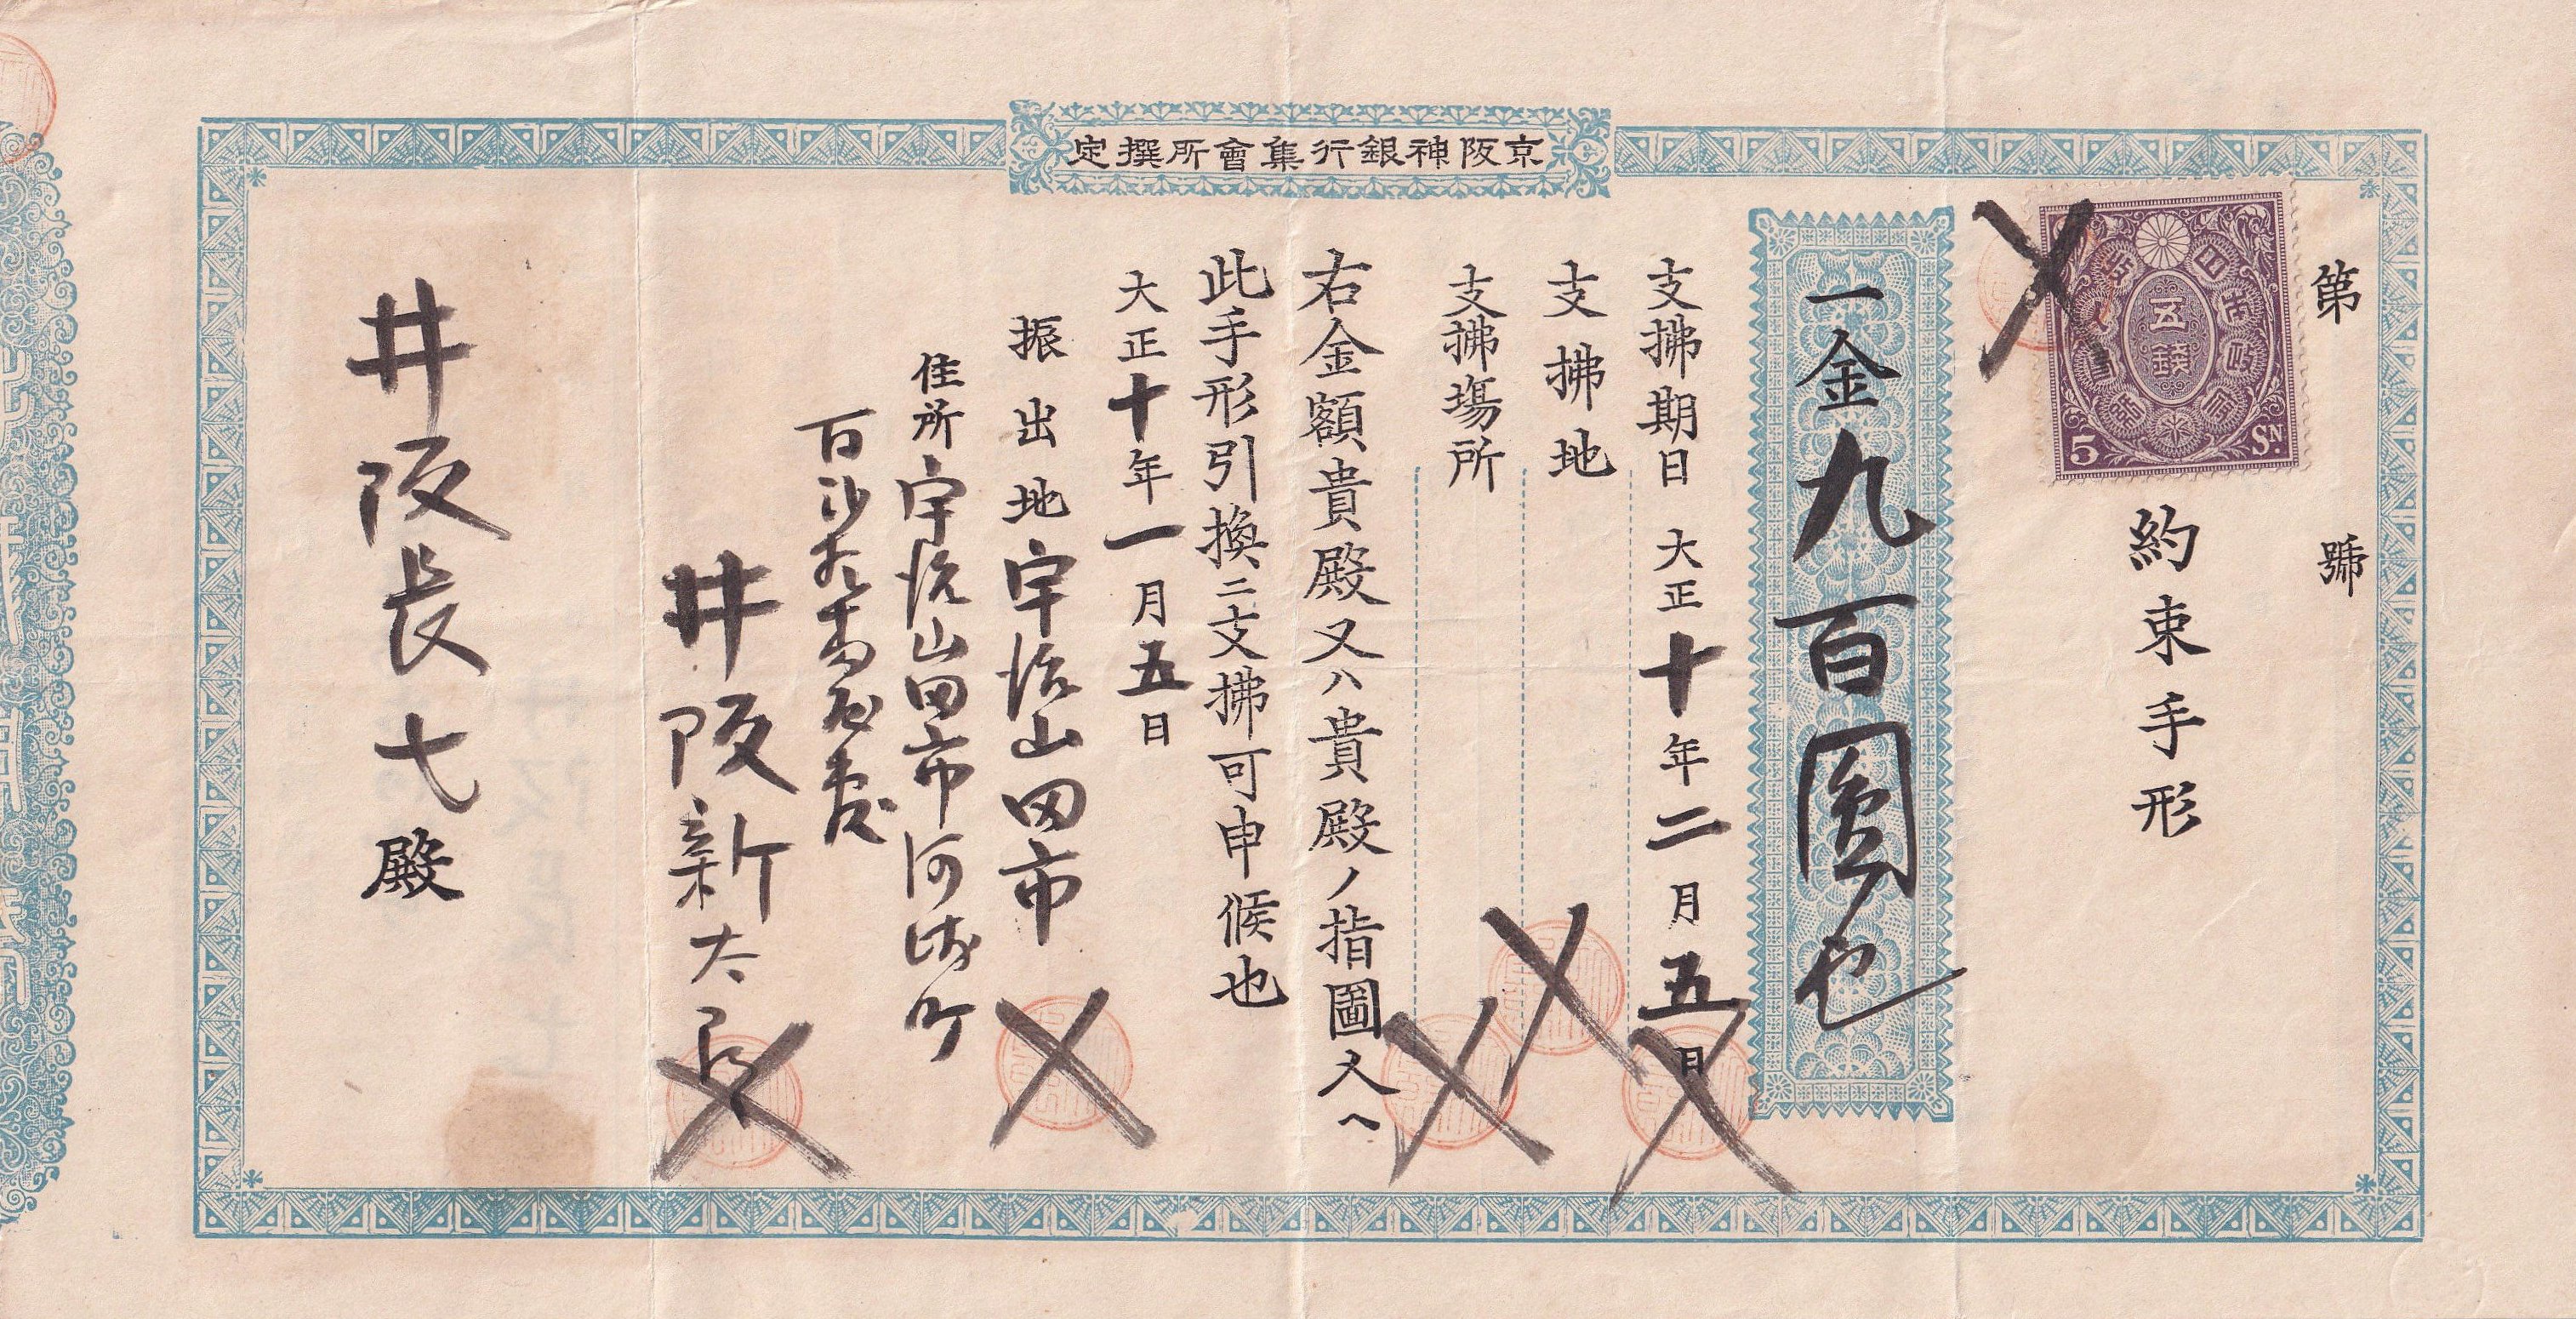 京阪神銀行集會所撰定
第 號
約束手形
大日本帝國政府
五錢
5 SN.
一金九百圓也
支拂期日 大正十年二月五日
支拂地
支拂場所
右金額貴殿又ハ貴殿ノ指圖人ヘ
此手形引換ニ支拂可申候也
大正十年一月五日
振出地 宇治山田市
住所 宇治山田市河崎町
百
井阪新太郎
井阪長七殿